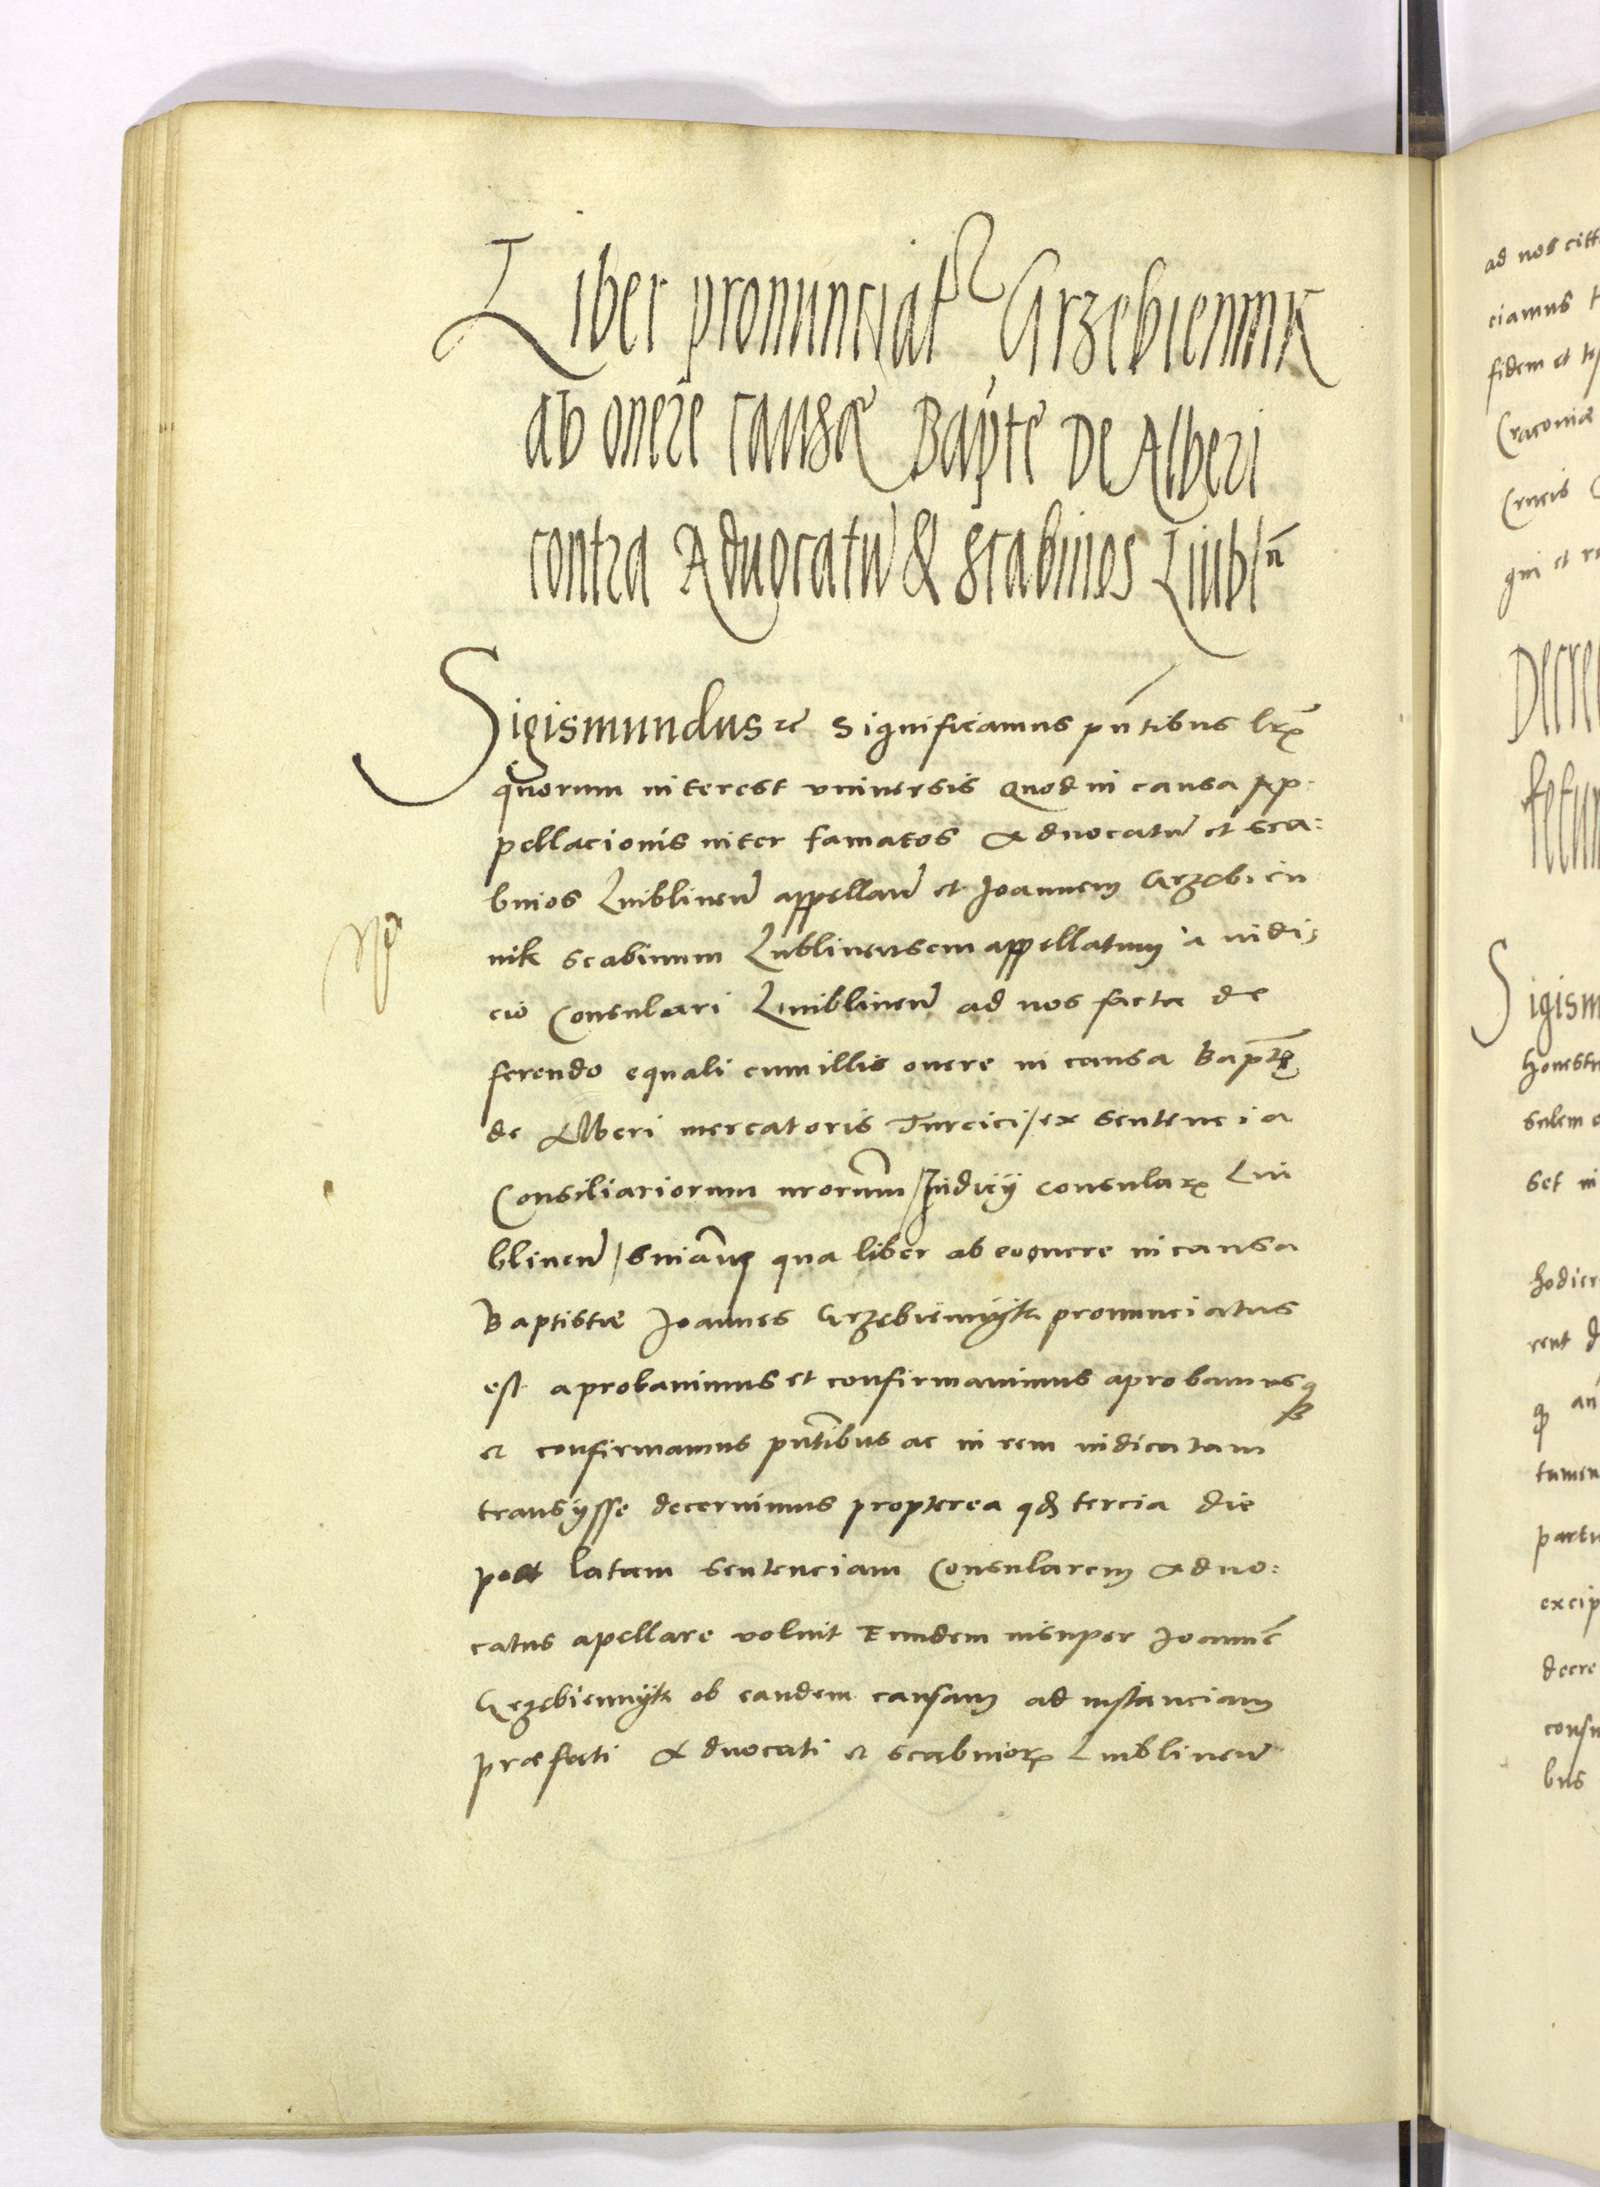 Liber pronunciat͛ Grzebiennik
ab onere causæ Bap̃te De Alberi
contra Aduocatũ & scabinos Liubl̃n
Sigismundus ꝛc̃ Significamus pñtibus lr̃is
quorum interest vniuersis Quod in causa Ap
pellacionis inter famatos Aduocatũ et sca:
binos Liublineñ appellañ et Joannem Grzebien
nik scabinum Lublinensem appellatum a iudi,
cio Consulari Liublineñ ad nos facta de
ferendo equali cum illis onere in causa Bap̃tę
de Alberi mercatoris Turcici / ex sentencia
Consiliariorum nrorum̃ / Judicij consularꝭ Liu
blineñ / sniãm qua liber ab eo onere in causa
Baptistæ Joannes Grzebiennijk pronunciatus
est aprobauimus et confirmauimus aprobamusqꝫ
et confirmamus pñtibus ac in rem iudicatam
transijsse decernimus propterea qđ tercia die
post latam sentenciam Consularem Aduo:
catus apellare voluit Eundem insuper Joannẽ
Grzebiennijk ob eandem causam ad instanciam
præfati Aduocati et scabinorꝭ Liublineñ
ad nos cit
ciamus
fidem et
Cracouiæ
Crucis
qui et
Decre
Sigism
honest
sulem
set in
hodier
rent
tamen
partu
excip
decre
consu
bus